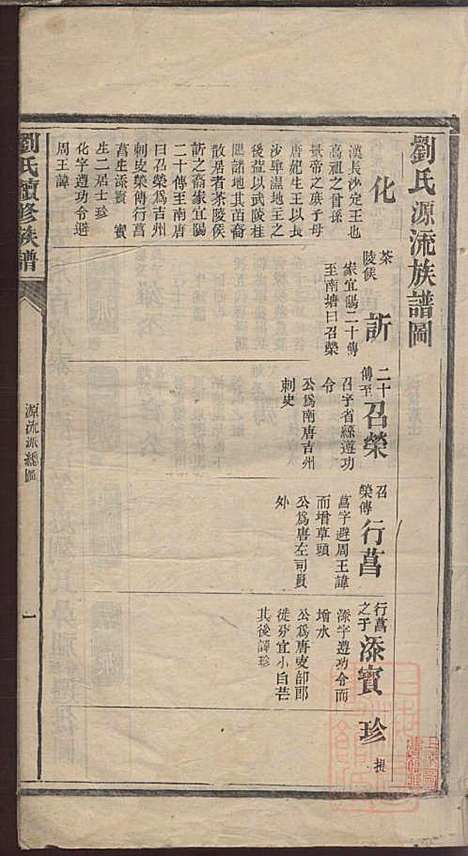 劉氏源流族譜圖
化
漢長沙定王也
高祖之曾孫
景帝之孫子母
唐妃生王以長
沙卑濕地王之
後益以武陵桂
陽諸地其苗裔
散居者茶陵侯
訢之裔家宜陽
二十傳至南唐
曰召榮爲吉州
刺史榮傳行菖
菖生添賓 賓
生二居士珍
化字遵功令避
周王諱
茶陵侯 訢
家宜陽二十傳
至南塘曰召榮
二十傳至 召榮
召字省繇遵功
令
公爲南唐吉州
刺史
召榮傳 行菖
菖字避周王諱
而增草頭
公爲唐左司員
外
行菖之子 添賓
添字遵功令而
增水
公爲唐吏部郎
徙分宜小白芒
其後譯珍
珍
劉氏續修族譜
源流派總圖
一